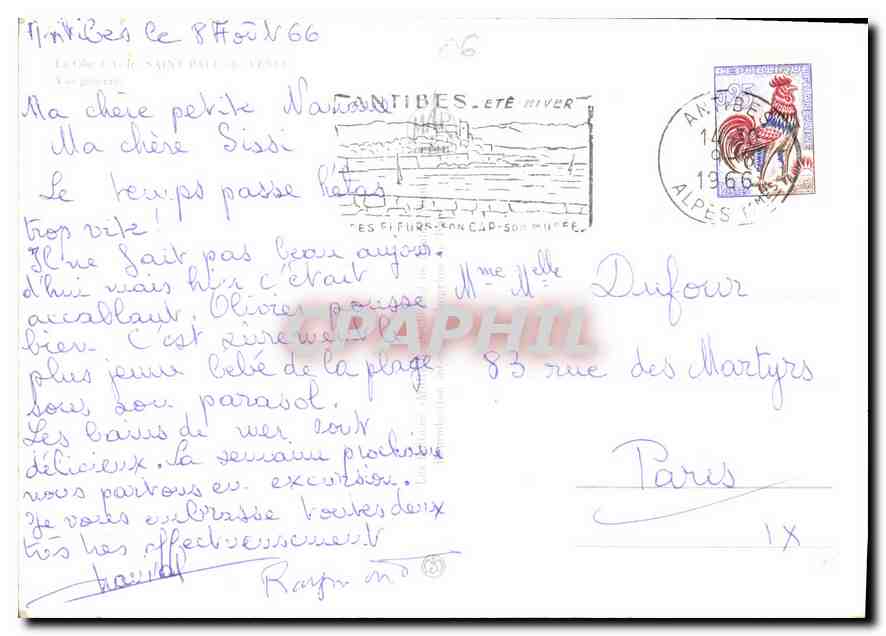 Antibes le 8 Août 66
06
La Côte d'Azur SAINT PAUL de VENCE
Vue générale
Ma chère petite
Ma chère Sissi
Le temps passe hélas
trop vite!
Il ne fait pas beau aujour-
d'hui mais hier c'était
accablant. Olivier pousse
bien. C'est sûrement le
plus jeune bébé de la plage
sous son parasol.
Les bains de mer sont
délicieux. La semaine prochaine
nous partons en excursion.
Je vous embrasse toutes deux
très très affectueusement
Raymond
ANTIBES - ETÉ HIVER
SES FLEURS - SON CAP - SON MUSÉE
0,25
ANTIBES
14
1966
ALPES Mmes
Mme Melle Dufour
83 rue des Martyrs
Paris
IX
CPAPHIL